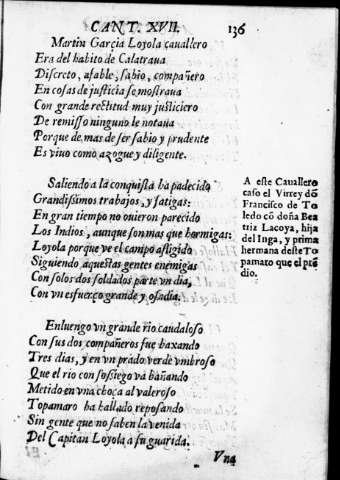 CANT. XVII. 136
Martin Garçia Loyola cauallero
Era del habito de Calatraua
Discreto, afable, sabio, compañero
En cosas de justicia se mostraua
Con grande rectitud muy justiciero
De remisso ninguno le notaua
Porque de mas de ser sabio y prudente
Es viuo como azogue y diligente.
Saliendo a la conquista ha padecido
Grandissimos trabajos, y fatigas:
En gran tiempo no ouieron parecido
Los Indios, aunque son mas que hormigas:
Loyola porque ve el campo afligido
Siguiendo aquestas gentes enemigas
Con solos dos soldados parte vn dia,
Con vn esfuerço grande y osadia.
A este Cauallero
caso el Virrey dō
Francisco de To
ledo cō doña Bea
triz Lacoya, hija
del Inga, y prima
hermana deste To
pamaro que el prē
dio.
En luengo vn grande rio caudaloso
Con sus dos compañeros fue baxando
Tres dias, y en vn prado verde vmbroso
Que el rio con sossiego va bañando
Metido en vna choça al valeroso
Topamaro ha hallado reposando
Sin gente que no saben la venida
Del Capitan Loyola a su guarida.
Vna